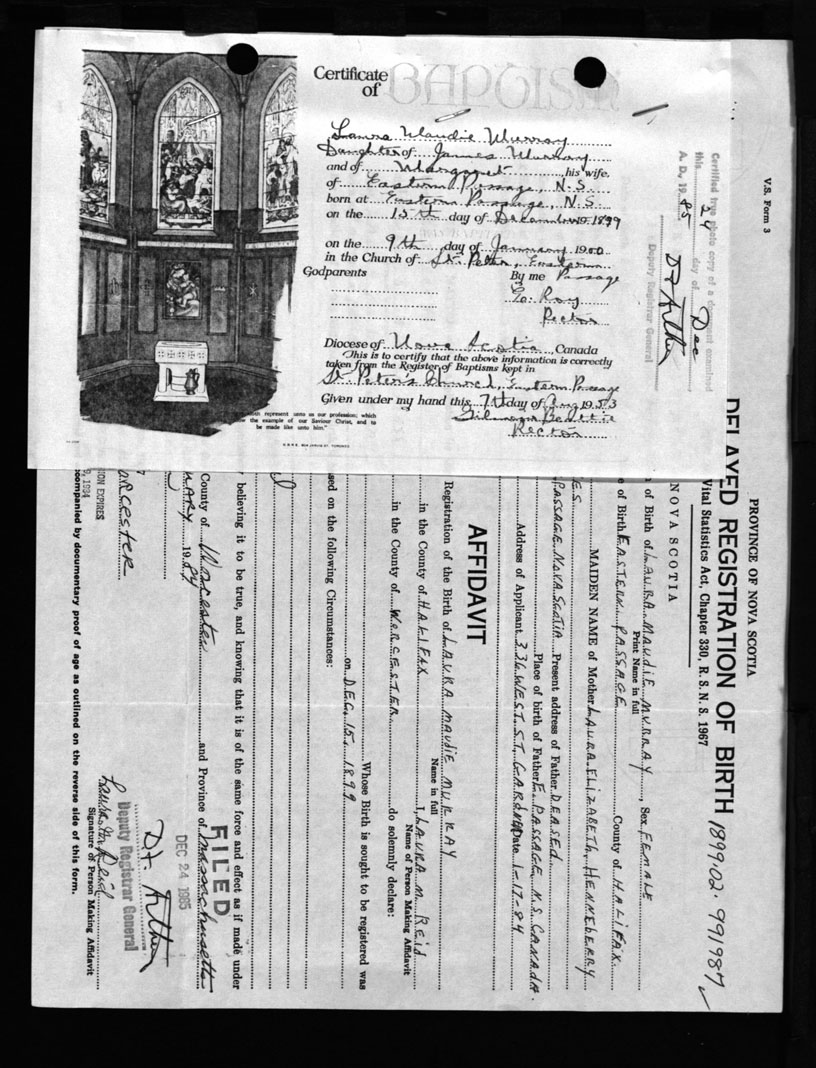 Certificate of BAPTISM
Laura Maudie Murray
Daughter of James Murray
and of Margaret, his wife.
of Eastern Passage, N.S.
born at Eastern Passage, N.S.
on the 15th day of December 1899
on the 9th day of January 1900
in the Church of St. Peter, Eastern
Godparents By me Passage
Rector
Diocese of Nova Scotia, Canada
This is to certify that the above information is correctly
taken from the Register of Baptisms kept in
St Peter's Church, Eastern Passage
Given under my hand this 7th day of Aug 1953
Rector
represent unto us our profession; which
the example of our Saviour Christ, and to
be made like unto him."
Certified true photo copy of a document examined
this 24 day of Dec
A. D., 1985
Deputy Registrar General
V.S. Form 3
PROVINCE OF NOVA SCOTIA
DELAYED REGISTRATION OF BIRTH 1899-02-991987
Vital Statistics Act, Chapter 330, R. S. N. S. 1967
NOVA SCOTIA
of Birth of LAURA MAUDIE MURRAY, Sex FEMALE
Print Name in full
e of Birth EASTERN PASSAGE County of HALIFAX
MAIDEN NAME of Mother LAURA ELIZABETH HENNEBERRY
ES
PASSAGE NOVA SCOTIA Present address of Father DEASED
Place of birth of Father E. PASSAGE N.S. CANADA.
Address of Applicant 336 WEST ST. Date 1-17-84
AFFIDAVIT
Registration of the Birth of LAURA MAUDIE MURRAY
Name in full
in the County of HALIFAX I, LAURA M. REID
Name of Person Making Affidavit
in the County of WORCESTER do solemnly declare:
Whose Birth is sought to be registered was
on DEC. 15. 1899
sed on the following Circumstances:
believing it to be true, and knowing that it is of the same force and effect as if made under
County of Worcester and Province of Massachusetts
UARY 1984
FILED
DEC 24 1985
Deputy Registrar General
ON EXPIRES
Laura M. Reid
Signature of Person Making Affidavit
ccompanied by documentary proof of age as outlined on the reverse side of this form.